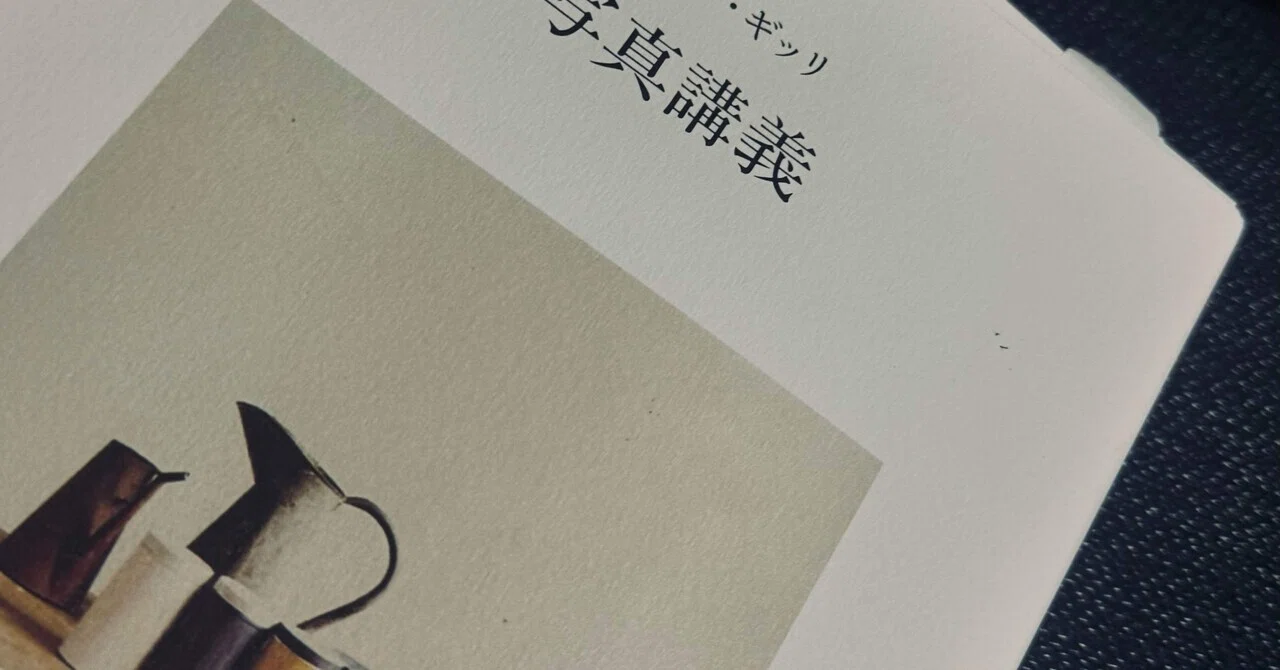 ・ギッリ
写真講義